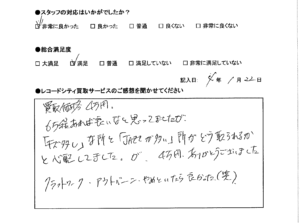 ●スタッフの対応はいかがでしたか?
☑非常に良かった □良かった □普通 □良くない □非常に良くない
●総合満足度
□大満足 ☑満足 □普通 □満足していない □非常に満足していない
記入日 年 1月22日
●レコードシティ買取サービスのご感想を聞かせてください
買取価格 4万円、
6万台あれば良いなと思ってましたが
「キズ多し」な所と「JAZZが多い」所がどう取られるか
と心配してました。が、4万円、ありがとうございました
クラフトワーク・アウトバーン・やめといたら良かった(笑)